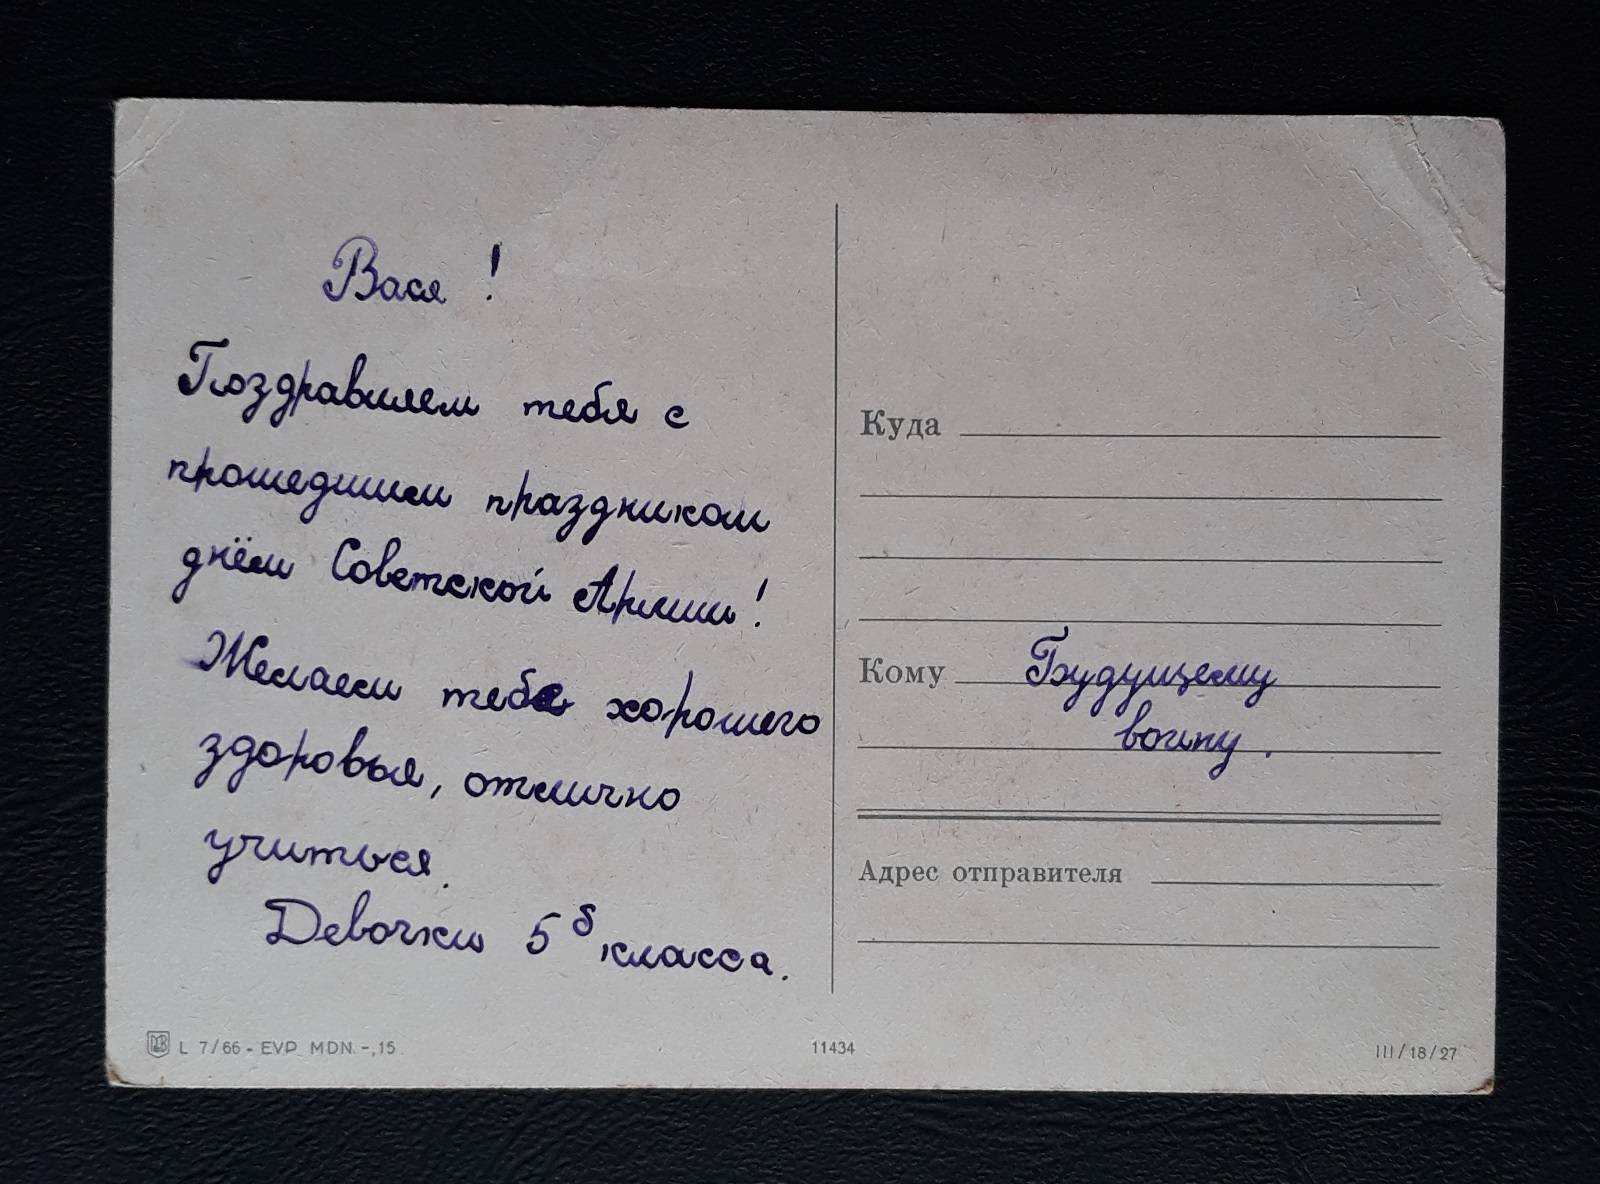 Вася!
Поздравляем тебя с
прошедшим праздником
днём Советской Армии!
Желаем тебе хорошего
здоровья, отлично
учиться.
Девочки 5 б класса.
Куда
Кому Будущему
воину.
Адрес отправителя
L 7/66 - EVP MDN -,15
11434
III/18/27